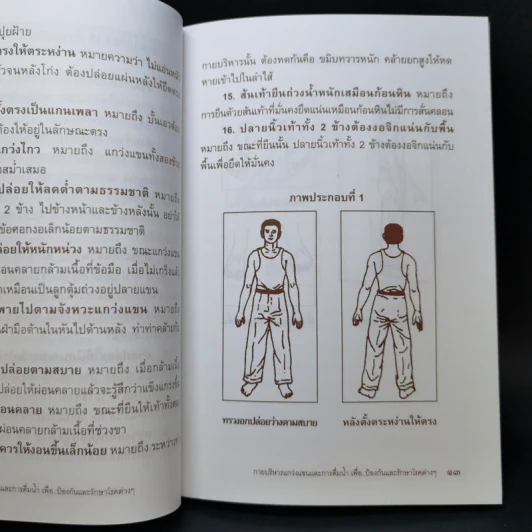 ปุยฝ้าย
ตรงให้ตระหง่าน หมายความว่า ไม่แอ่นหลัง
จนหลังโก่ง ต้องปล่อยแผ่นหลังให้ยืดตรง
ตั้งตรงเป็นแกนเพลา หมายถึง บั้นเอวต้อง
ต้องให้อยู่ในลักษณะตรง
แกว่งไกว หมายถึง แกว่งแขนทั้งสองข้าง
สม่ำเสมอ
ปล่อยให้ลดต่ำตามธรรมชาติ หมายถึง
2 ข้าง ไปข้างหน้าและข้างหลังนั้น อย่าให้
ข้อศอกงอเล็กน้อยตามธรรมชาติ
ปล่อยให้หนักหน่วง หมายถึง ขณะแกว่งแขน
ผ่อนคลายกล้ามเนื้อที่ข้อมือ เมื่อไม่เกร็งแล้ว
เหมือนเป็นลูกตุ้มถ่วงอยู่ปลายแขน
พายไปตามจังหวะแกว่งแขน หมายถึง
ฝ่ามือด้านในหันไปด้านหลัง ทำท่าคล้ายกับ
ปล่อยตามสบาย หมายถึง เมื่อกล้ามเนื้อ
ปล่อยให้ผ่อนคลายแล้วจะรู้สึกว่าแข็งแกร่งขึ้น
ผ่อนคลาย หมายถึง ขณะที่ยืนให้เท้าทั้งสอง
ผ่อนคลายกล้ามเนื้อที่ช่วงขา
ควรให้งอนขึ้นเล็กน้อย หมายถึง ระหว่างทำ
และการดื่มน้ำ เพื่อ..ป้องกันและรักษาโรคต่างๆ
กายบริหารนั้น ต้องหดก้นคือ ขมิบทวารหนัก คล้ายยกสูงให้หด
หายเข้าไปในลำไส้
15. ส้นเท้ายืนถ่วงน้ำหนักเสมือนก้อนหิน หมายถึง
การยืนด้วยส้นเท้าที่มั่นคงยึดแน่นเหมือนก้อนหินไม่มีการสั่นคลอน
16. ปลายนิ้วเท้าทั้ง 2 ข้างต้องงอจิกแน่นกับพื้น
หมายถึง ขณะที่ยืนนั้น ปลายนิ้วเท้าทั้ง 2 ข้างต้องงอจิกแน่นกับ
พื้นเพื่อยึดให้มั่นคง
ภาพประกอบที่ 1
ทรวงอกปล่อยว่างตามสบาย
หลังตั้งตระหง่านให้ตรง
กายบริหารแกว่งแขนและการดื่มน้ำ เพื่อ..ป้องกันและรักษาโรคต่างๆ ๑๓